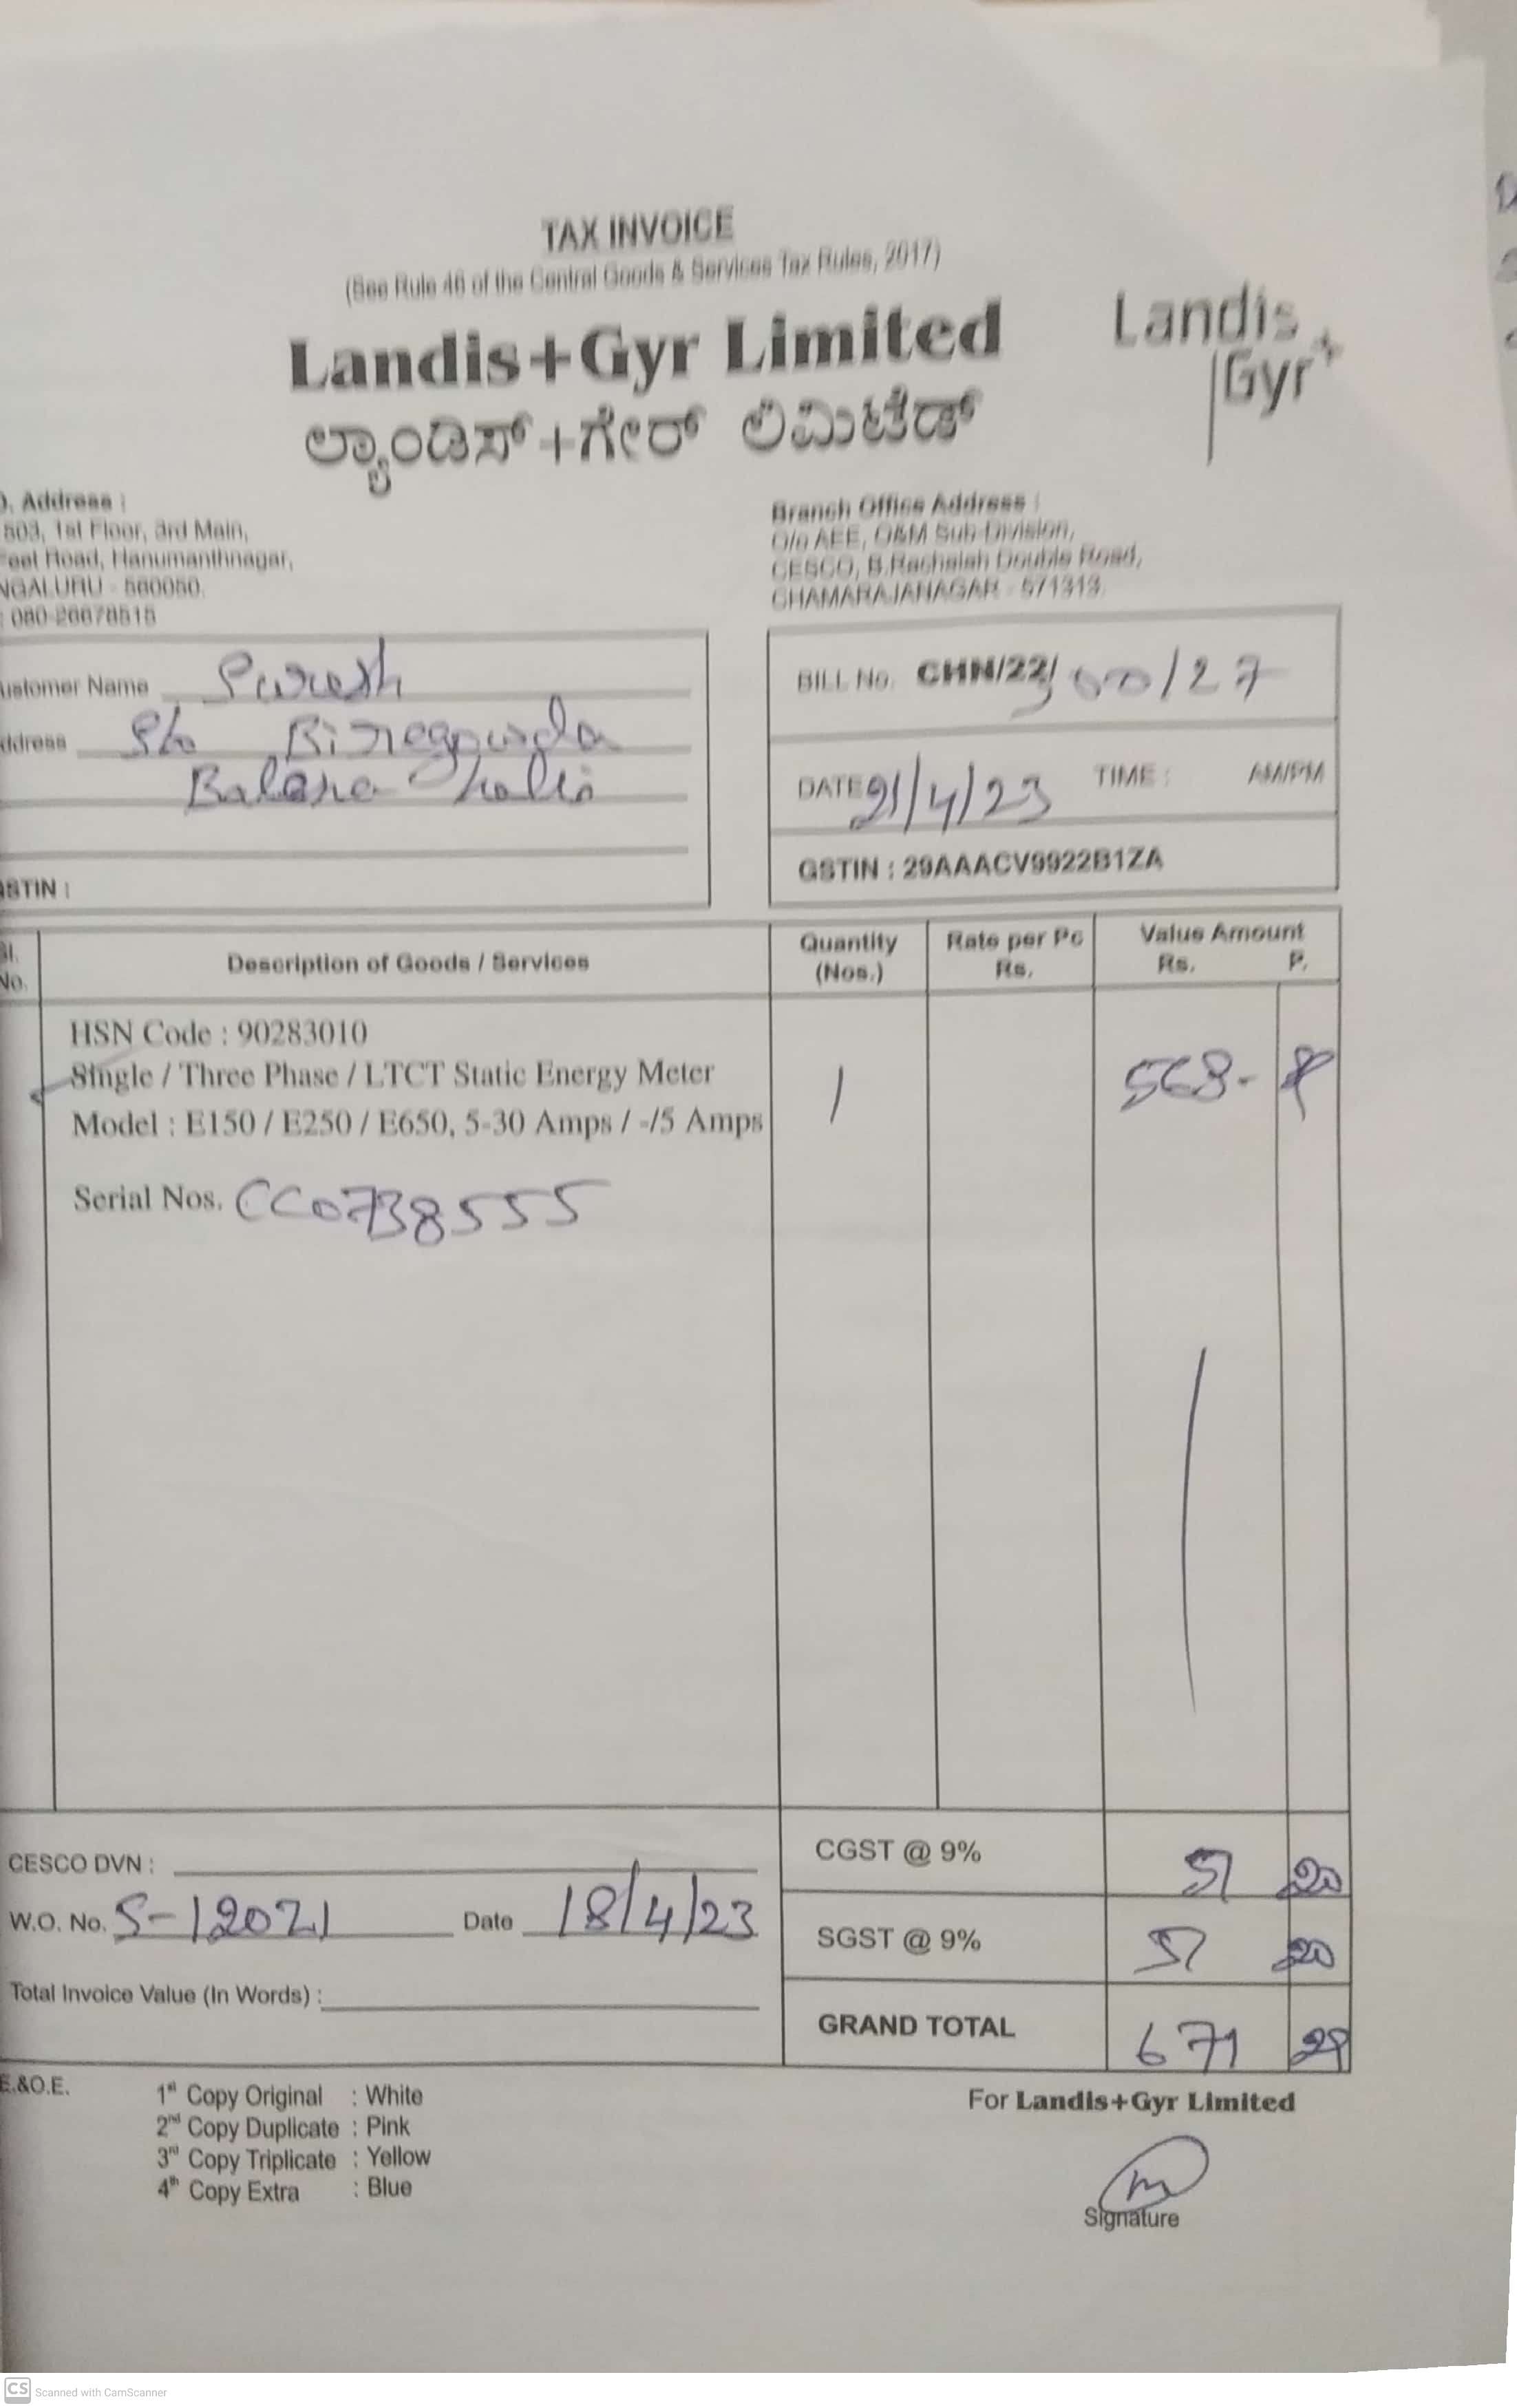 TAX INVOICE
(See Rule 46 of the Central Goods & Services Tax Rules, 2017)
Landis+Gyr Limited
ಲ್ಯಾಂಡಿಸ್+ಗೇರ್ ಲಿಮಿಟೆಡ್
Landis
Gyr+
. Address :
503, 1st Floor, 3rd Main,
Feet Road, Hanumanthnagar,
NGALURU - 560050.
: 080-26678515
Branch Office Address :
O/o AEE, O&M Sub-Division,
CESCO, B.Rachaiah Double Road,
CHAMARAJANAGAR - 571313.
ustomer Name Suresh
ddress S/o
STIN :
BILL No. CHN/22/ 300/27
DATE 21/4/23 TIME : AM/PM
GSTIN : 29AAACV9922B1ZA
Sl. No. Description of Goods / Services Quantity (Nos.) Rate per Pc Rs. Value Amount Rs. P.
HSN Code : 90283010
Single / Three Phase / LTCT Static Energy Meter 1 568-
Model : E150 / E250 / E650, 5-30 Amps / -/5 Amps
Serial Nos. CC0738555
CESCO DVN :
W.O. No. S-12021 Date 18/4/23
Total Invoice Value (In Words) :
CGST @ 9% 51 20
SGST @ 9% 51 20
GRAND TOTAL 671
E.&O.E.
1st Copy Original : White
2nd Copy Duplicate : Pink
3rd Copy Triplicate : Yellow
4th Copy Extra : Blue
For Landis+Gyr Limited
Signature
CS Scanned with CamScanner